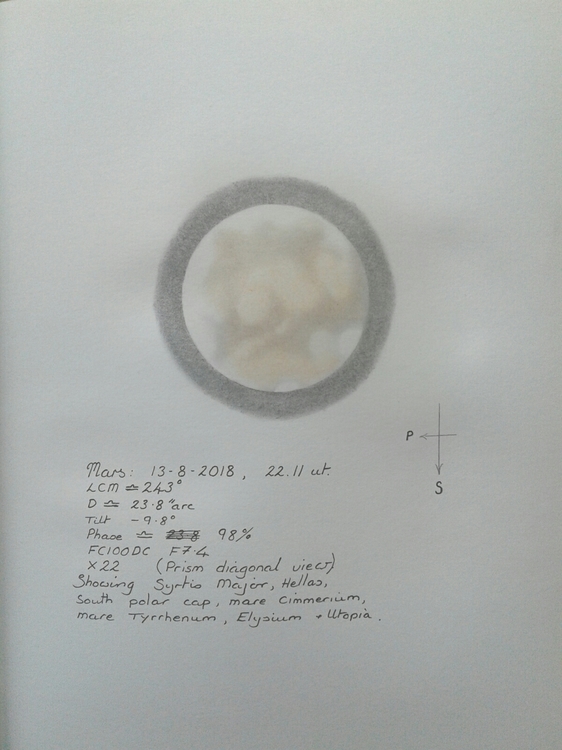 P
S
Mars: 13-8-2018, 22.11 ut.
LCM ≏ 243°
D ≏ 23.8"arc
Tilt -9.8°
Phase ≏ 23.8 98%
FC100DC F7.4
x22 (Prism diagonal view)
Showing Syrtis Major, Hellas,
South polar cap, mare Cimmerium,
mare Tyrrhenum, Elysium + Utopia.